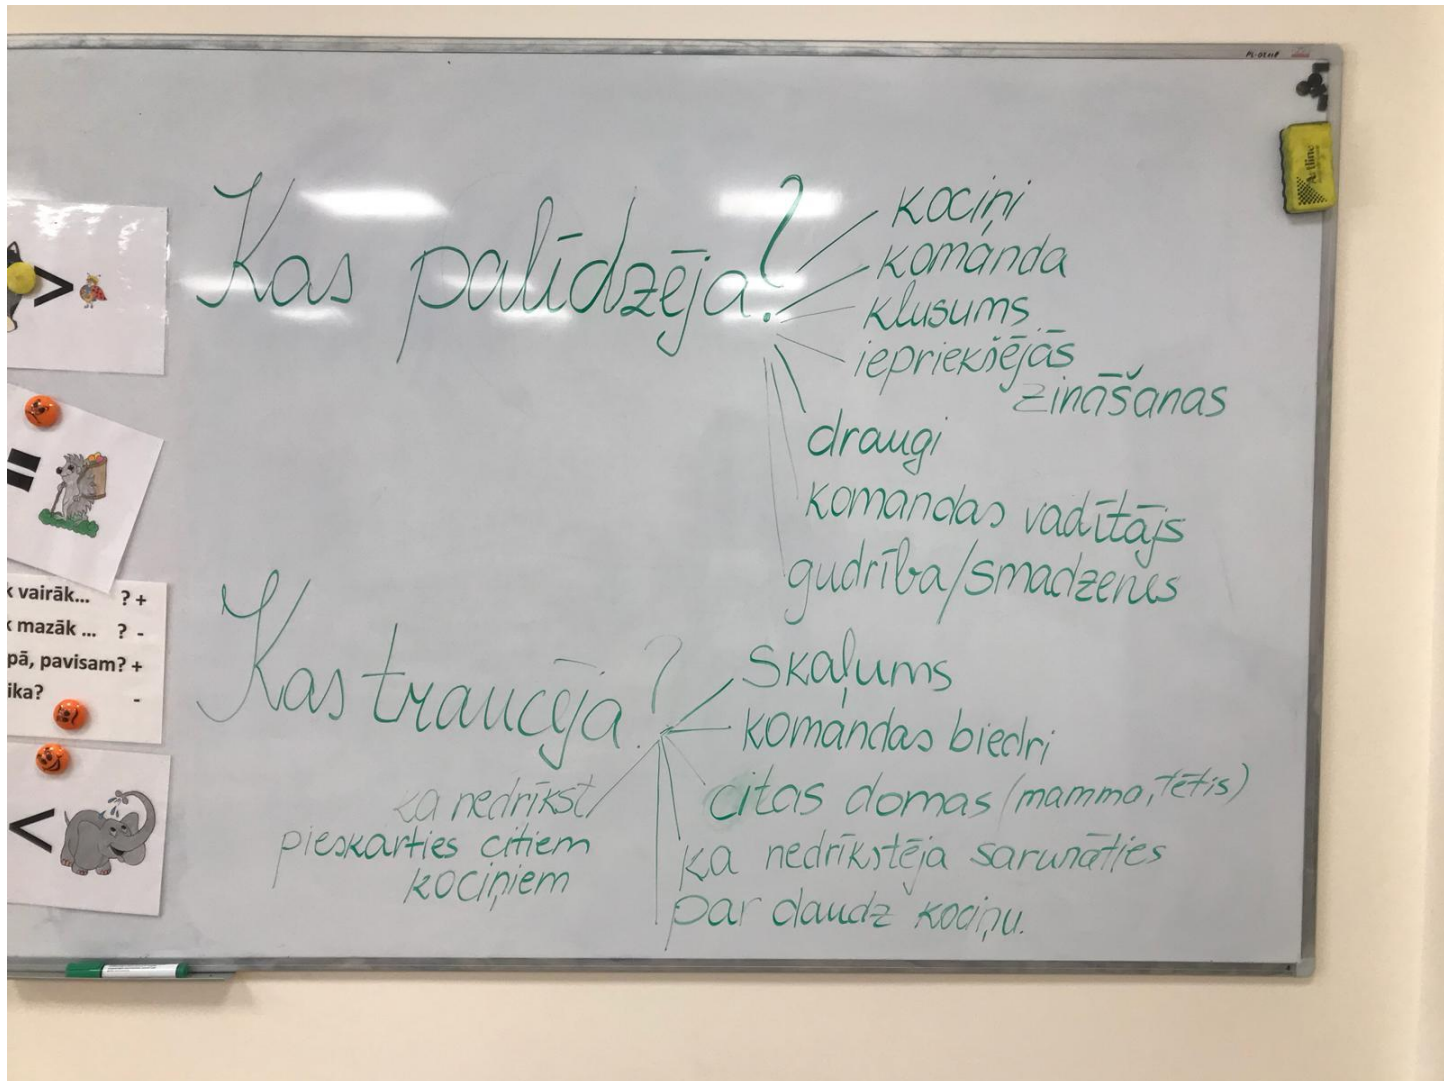 Kas palīdzēja?
kociņi
komanda
klusums
iepriekšējās
zināšanas
draugi
komandas vadītājs
gudrība/smadzenes
Kas traucēja?
skaļums
komandas biedri
citas domas (mamma, tētis)
ka nedrīkstēja sarunāties
par daudz kociņu.
ka nedrīkst
pieskarties citiem
kociņiem
>
=
k vairāk... ? +
k mazāk ... ? -
pā, pavisam? +
ika? -
<
Artline